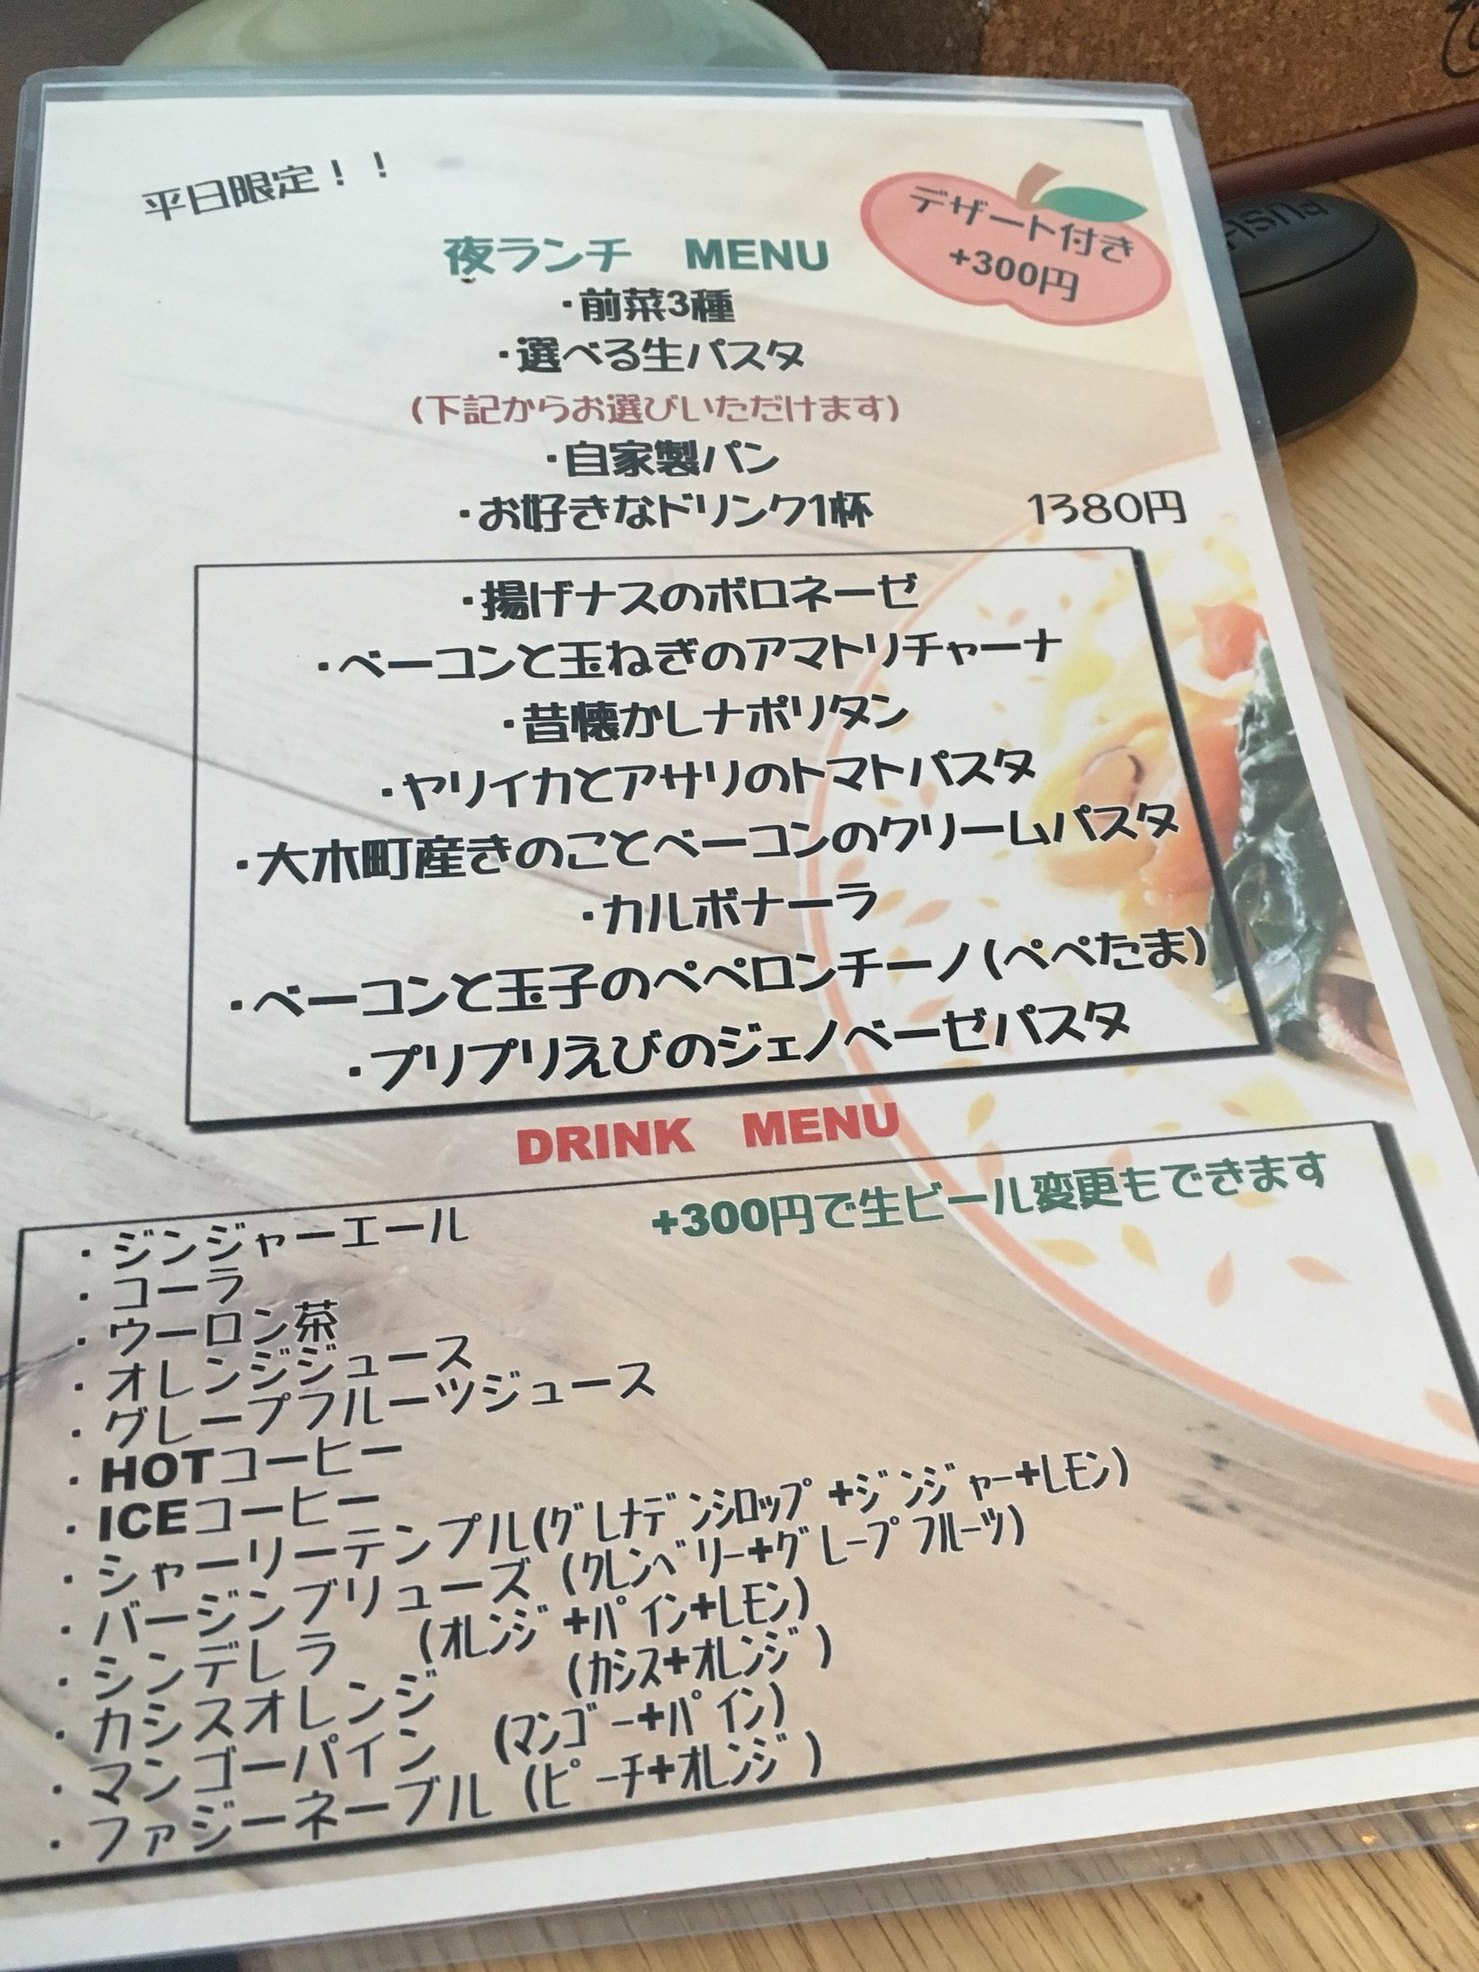 平日限定！！
デザート付き
+300円
夜ランチ　MENU
・前菜3種
・選べる生パスタ
(下記からお選びいただけます)
・自家製パン
・お好きなドリンク1杯　1380円
・揚げナスのボロネーゼ
・ベーコンと玉ねぎのアマトリチャーナ
・昔懐かしナポリタン
・ヤリイカとアサリのトマトパスタ
・大木町産きのことベーコンのクリームパスタ
・カルボナーラ
・ベーコンと玉子のペペロンチーノ(ペペたま)
・プリプリえびのジェノベーゼパスタ
DRINK　MENU
+300円で生ビール変更もできます
・ジンジャーエール
・コーラ
・ウーロン茶
・オレンジジュース
・グレープフルーツジュース
・HOTコーヒー
・ICEコーヒー
・シャーリーテンプル(ｸﾞﾚﾅﾃﾞﾝｼﾛｯﾌﾟ+ｼﾞﾝｼﾞｬｰ+ﾚﾓﾝ)
・バージンブリューズ (ｸﾚﾝﾍﾞﾘｰ+ｸﾞﾚｰﾌﾟﾌﾙｰﾂ)
・シンデレラ　(ｵﾚﾝｼﾞ+ﾊﾟｲﾝ+ﾚﾓﾝ)
・カシスオレンジ　(ｶｼｽ+ｵﾚﾝｼﾞ)
・マンゴーパイン　(ﾏﾝｺﾞｰ+ﾊﾟｲﾝ)
・ファジーネーブル (ﾋﾟｰﾁ+ｵﾚﾝｼﾞ)
PUSH